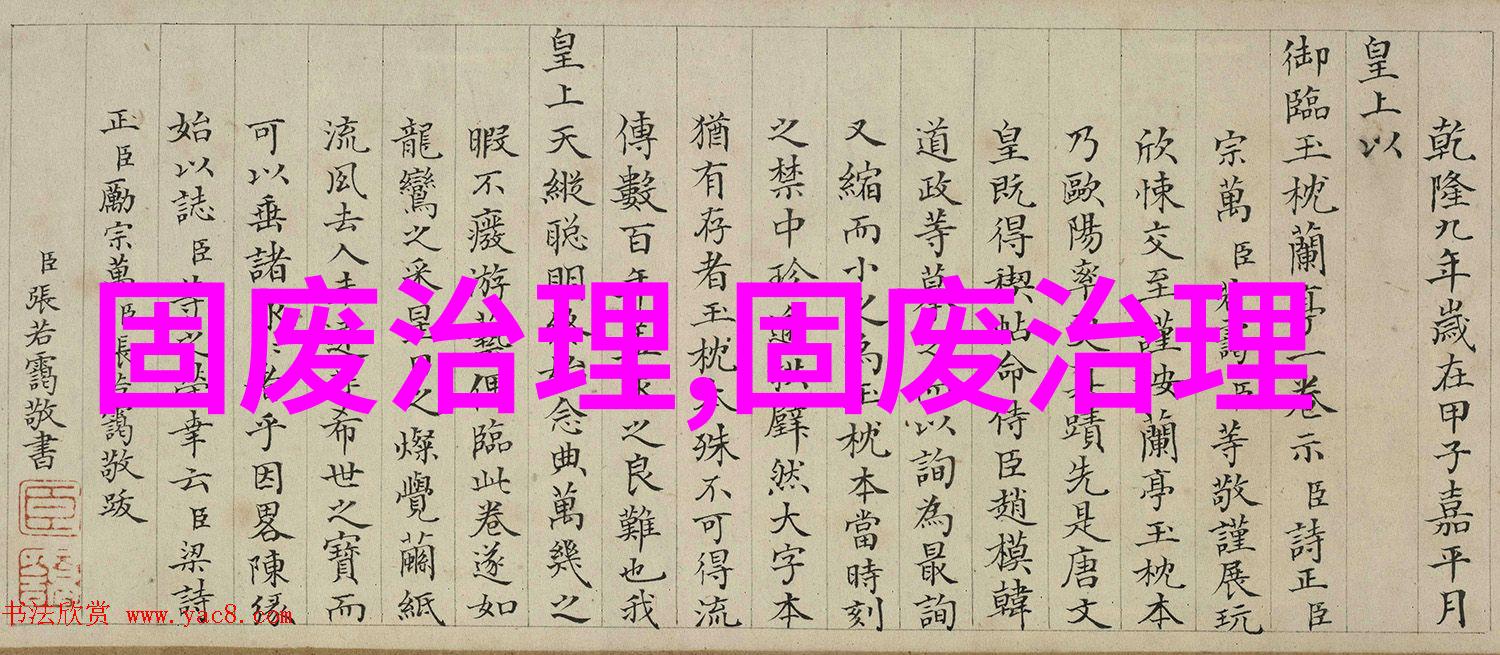 乾隆九年歲在甲子嘉平月
皇上以
御臨玉枕蘭亭一卷示臣詩正臣
宗萬臣若靄臣等敬謹展玩
欣悚交至謹按蘭亭玉枕本
乃歐陽率更真蹟先是唐文
皇既得禊帖命侍臣趙模韓
道政等摹之以詢為最詢
又縮而小之為玉枕本當時刻
之禁中珍逾拱璧然大字本
猶有存者玉枕本殊不可得流
傳數百年之良難也我
皇上天縱聰明念典萬幾之
暇不癈游藝臨此卷遂如
龍鸞之采皇之燦覺繭紙
流風去人希世之寶而
可以垂諸乎因畧陳緣
始以誌臣等之幸云臣梁詩
正臣勵宗萬臣張若靄敬跋
臣張若靄敬書
固废治理,固废治理
书法欣赏 www.yac8.com